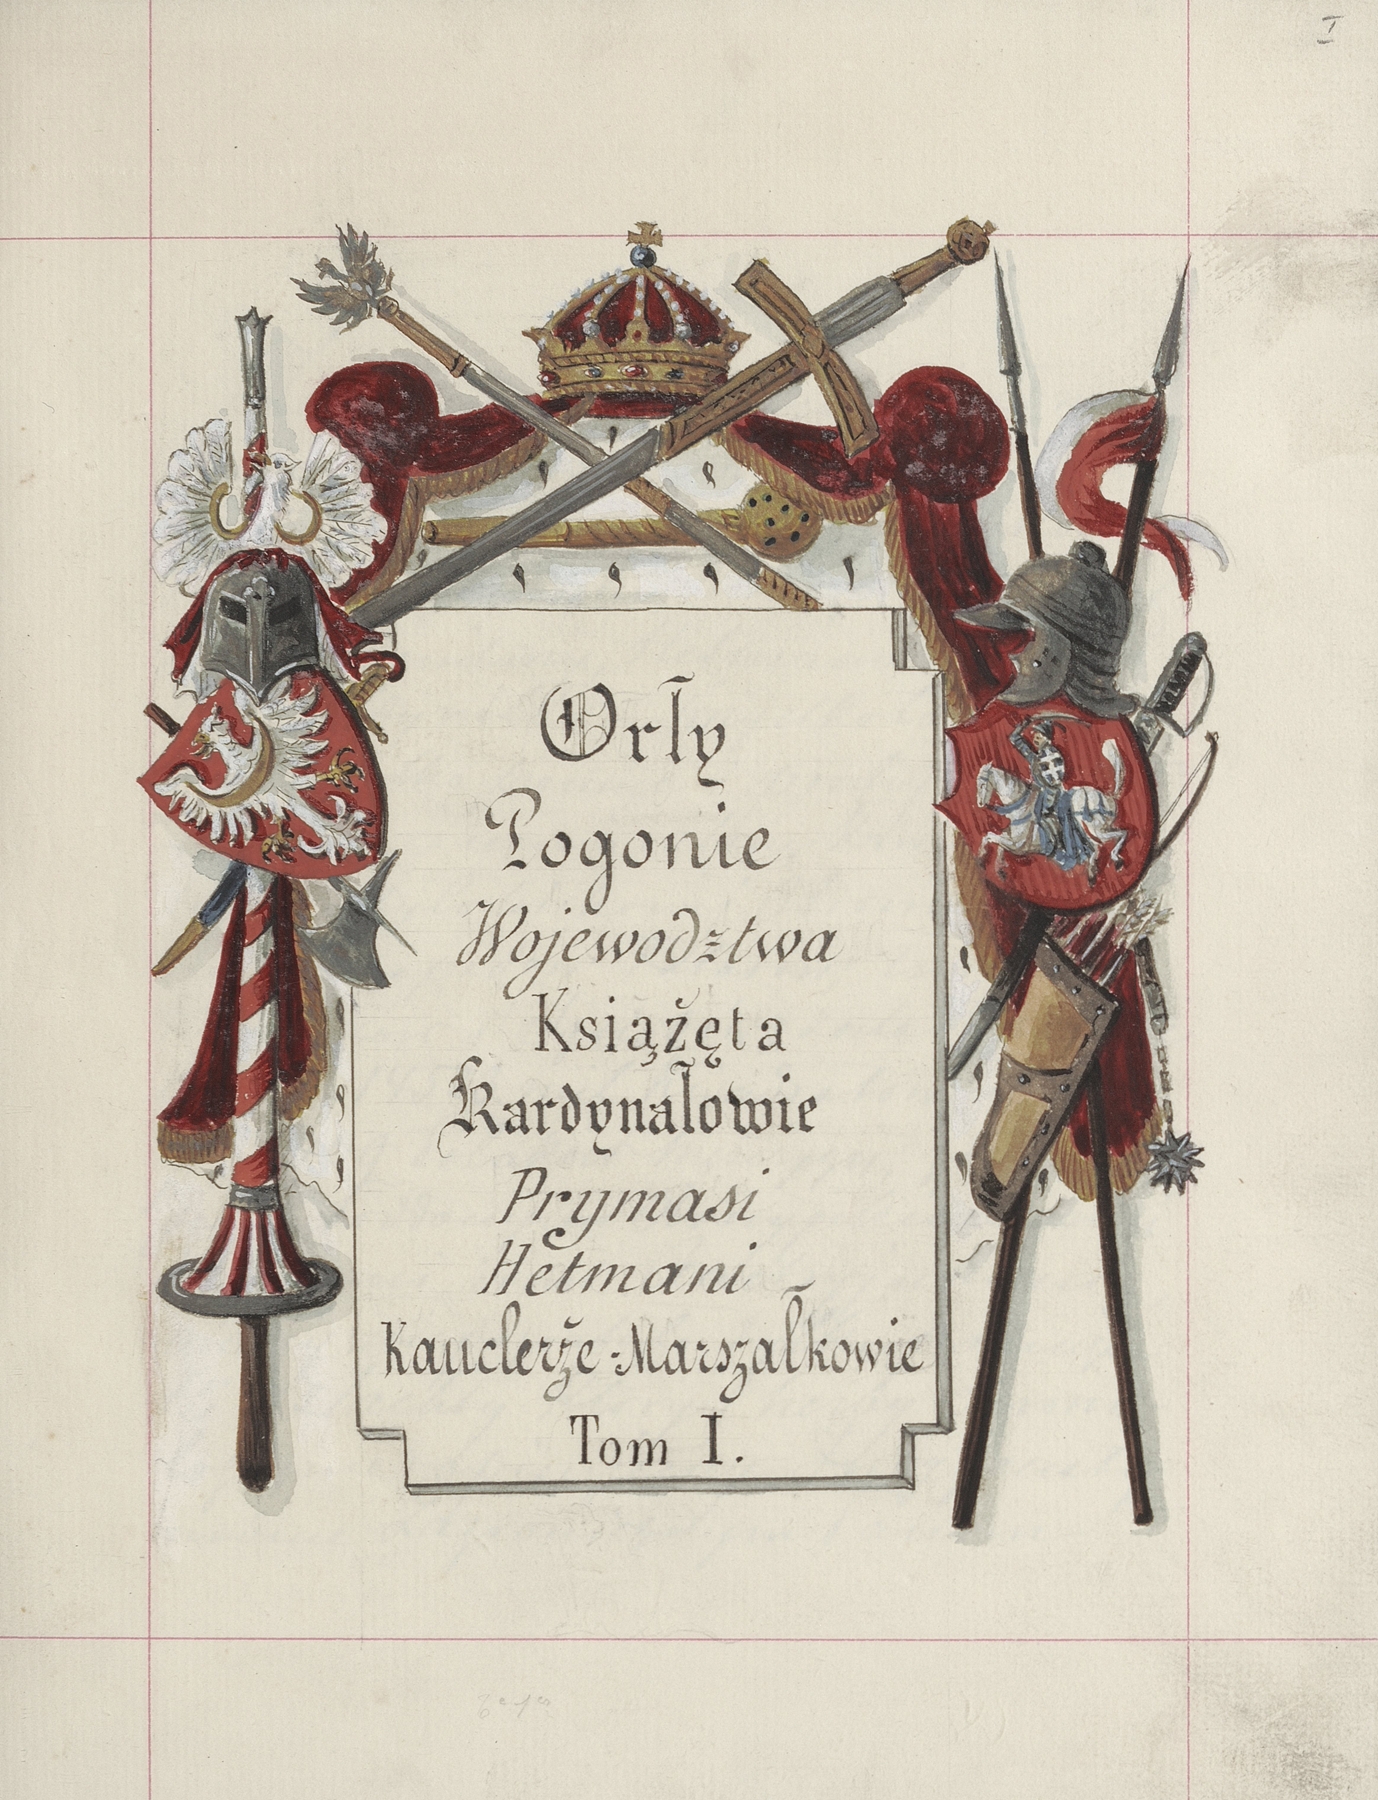 I
Orły
Pogonie
Wojewodztwa
Książęta
Kardynałowie
Prymasi
Hetmani
Kanclerze - Marszałkowie
Tom I.